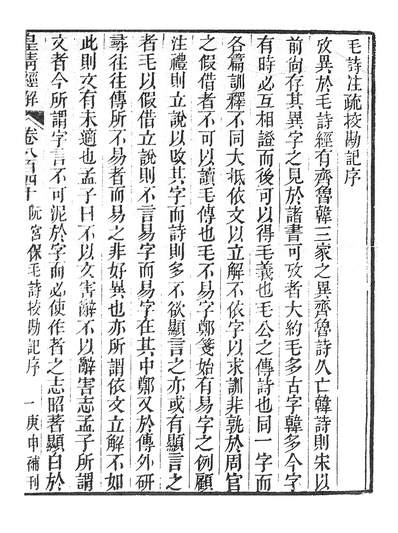 毛詩注疏挍勘記序
攷異於毛詩經有齊魯韓三家之異齊魯詩久亡韓詩則宋以
前尙存其異字之見於諸書可攷者大約毛多古字韓多今字
有時必互相證而後可以得毛義也毛公之傳詩也同一字而
各篇訓釋不同大抵依文以立解不依字以求訓非孰於周官
之假借者不可以讀毛傳也毛不易字鄭箋始有易字之例顧
注禮則立說以攺其字而詩則多不欲顯言之亦或有顯言之
者毛以假借立說則不言易字而易字在其中鄭又於傳外研
尋往往傳所不易者而易之非好異也亦所謂依文立解不如
此則文有未適也孟子曰不以文害辭不以辭害志孟子所謂
文者今所謂字言不可泥於字而必使作者之志昭著顯白於
皇淸經解 卷八百四十 阮宮保毛詩挍勘記序 一 庚申補刊